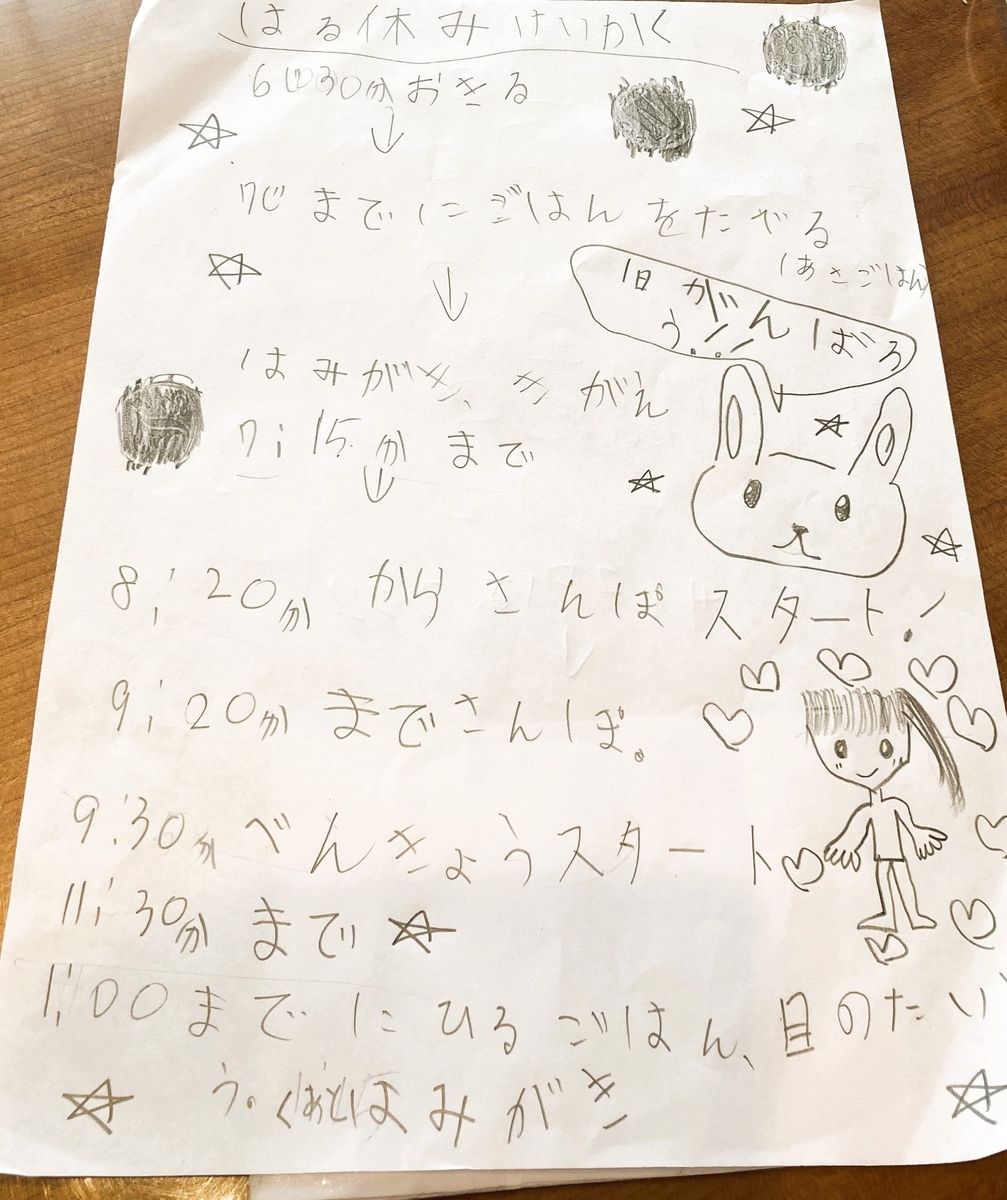 はる休みけいかく
6じ30分おきる
↓
7じまでにごはんをたべる
(あさごはん)
↓
1日がんばろ
う!!
はみがき、きがえ
7:15分まで
↓
8:20分からさんぽスタート!
9:20分までさんぽ。
9:30分べんきょうスタート
11:30分まで
1:00までにひるごはん、目のたい
う。はみがき